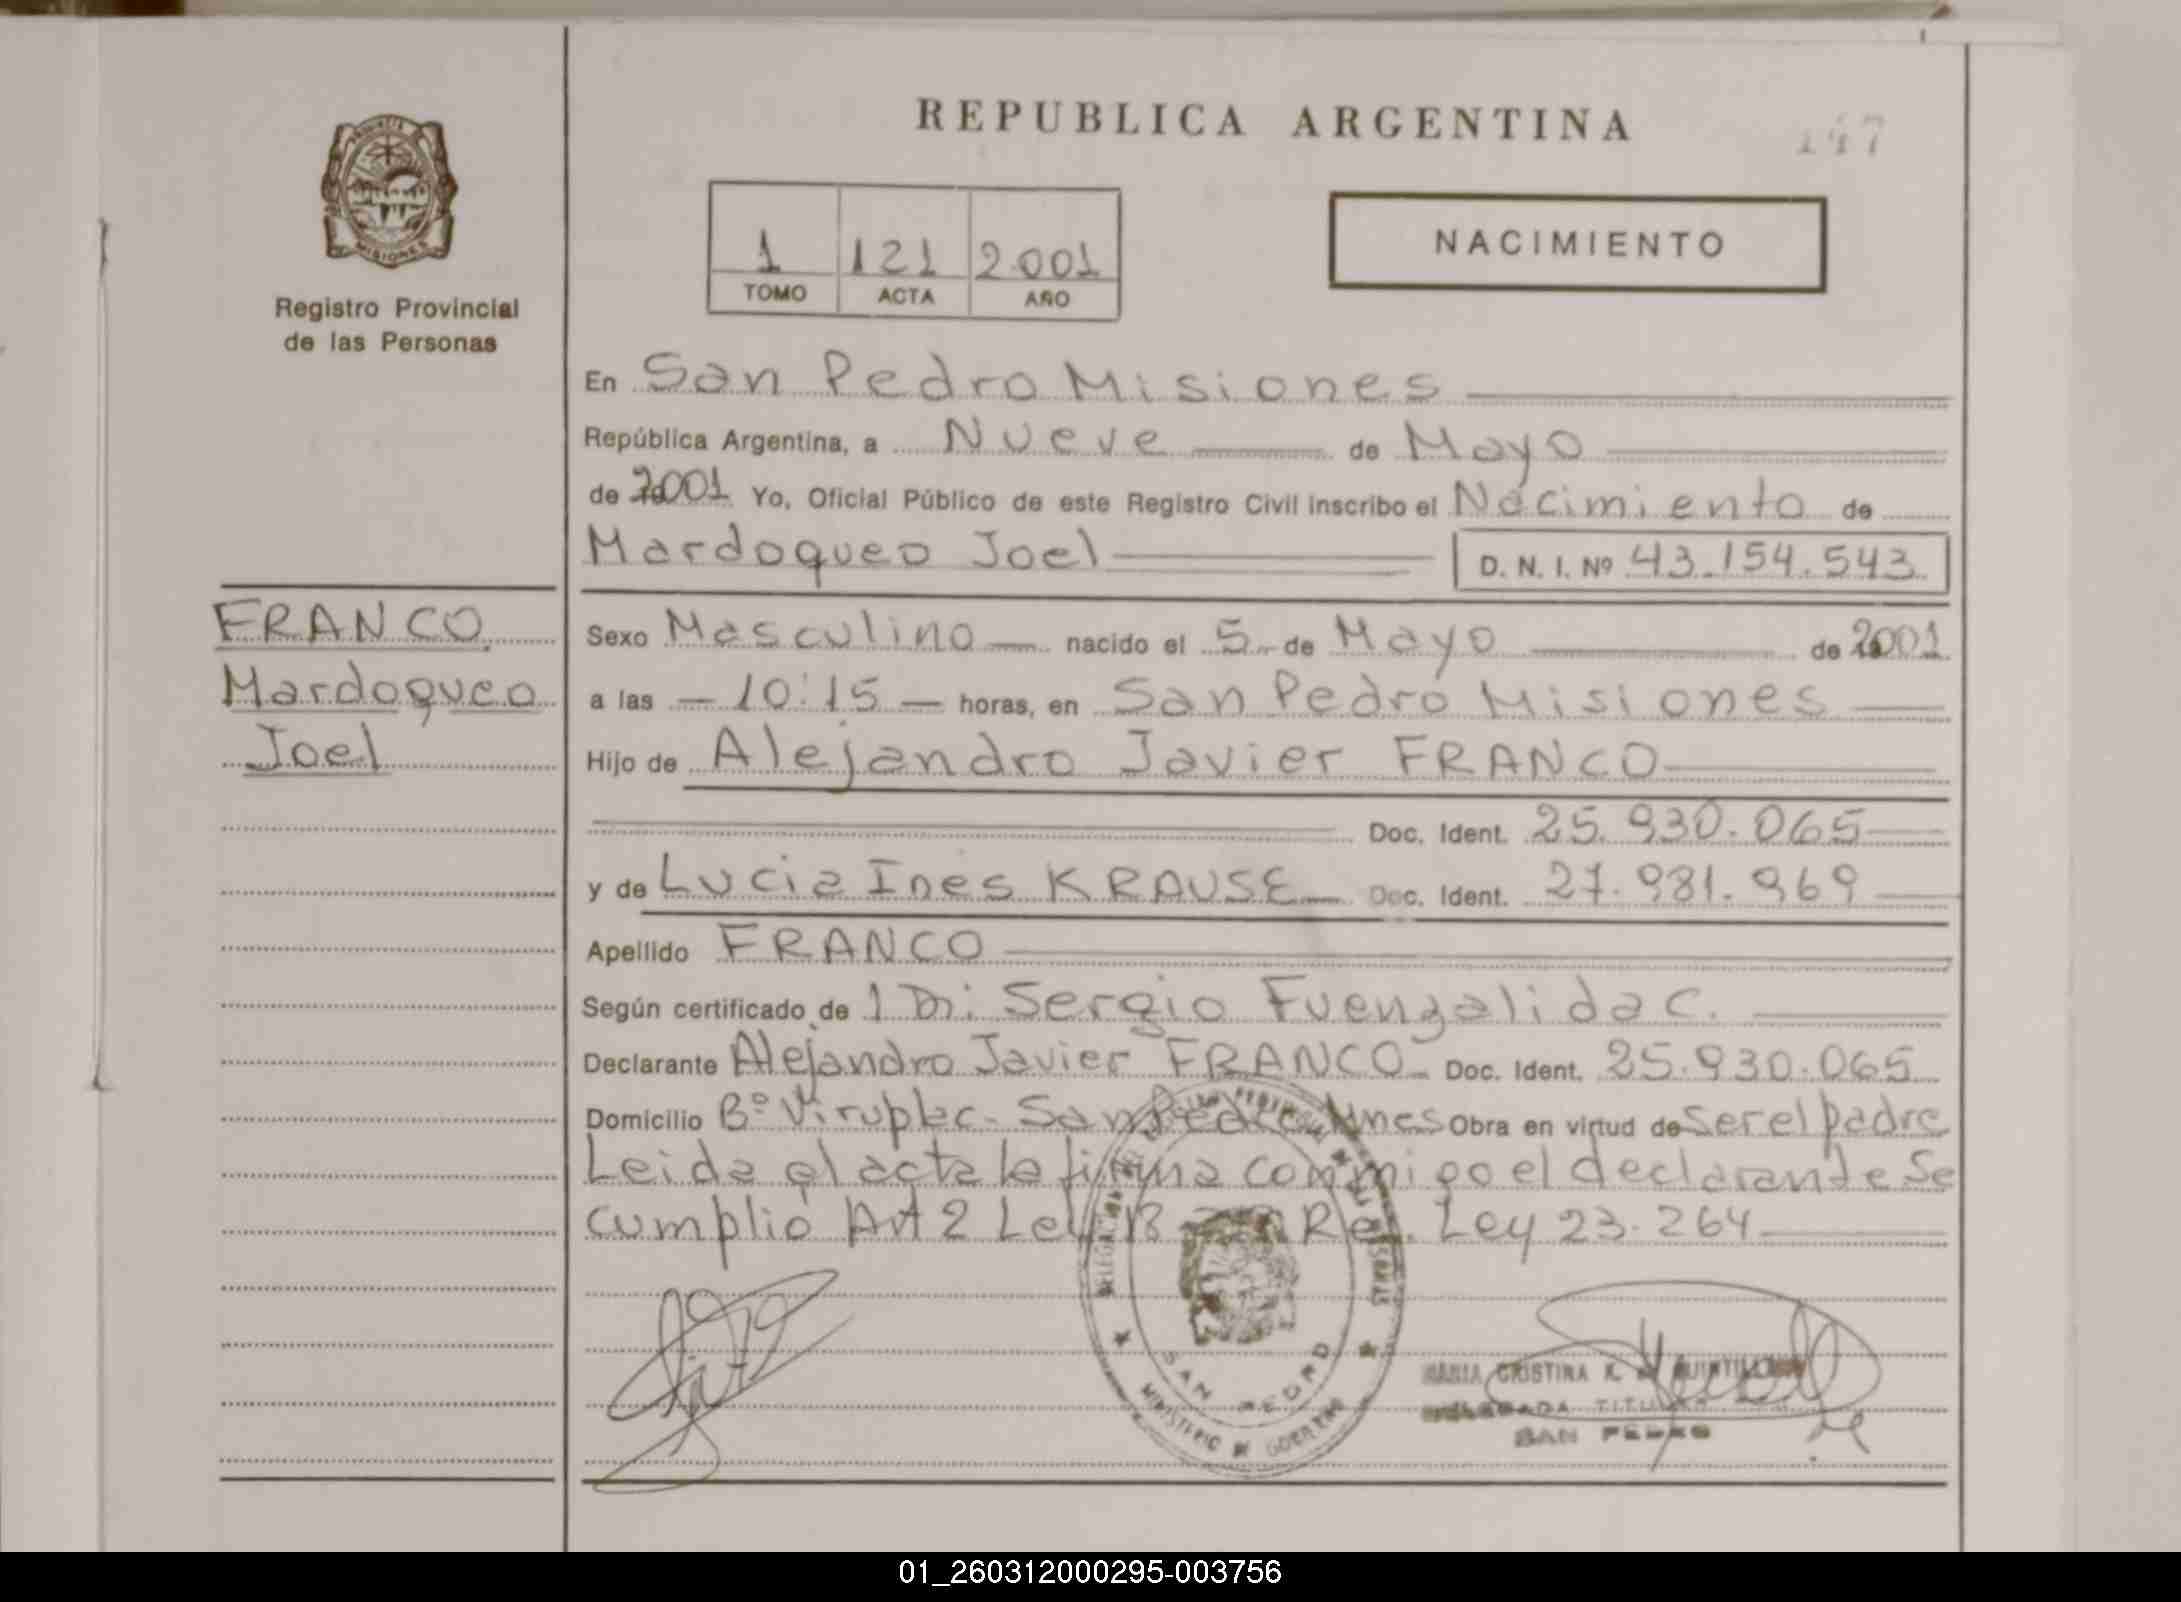 REPUBLICA ARGENTINA
147
MISIONES
Registro Provincial
de las Personas
1 121 2001
TOMO ACTA AÑO
NACIMIENTO
En San Pedro Misiones
República Argentina, a Nueve de Mayo
de 2001 Yo, Oficial Público de este Registro Civil inscribo el Nacimiento de
Mardoqueo Joel D. N. I. Nº 43.154.543
FRANCO
Mardoqueo
Joel
Sexo Masculino nacido el 5 de Mayo de 2001
a las - 10:15 - horas, en San Pedro Misiones
Hijo de Alejandro Javier FRANCO
Doc. Ident. 25.930.065
y de Lucia Ines KRAUSE Doc. Ident. 27.981.969
Apellido FRANCO
Según certificado de 1 Dr. Sergio Fuenzalida C.
Declarante Alejandro Javier FRANCO Doc. Ident. 25.930.065
Domicilio Bº San Pedro Mnes Obra en virtud de ser el padre
Leida el acta la firma conmigo el declarante Se
cumplió Art 2 Ley Ley 23.264
SAN PEDRO
MINISTERIO DE GOBIERNO
MARIA CRISTINA K.
DELEGADA TITULAR
SAN PEDRO
01_260312000295-003756